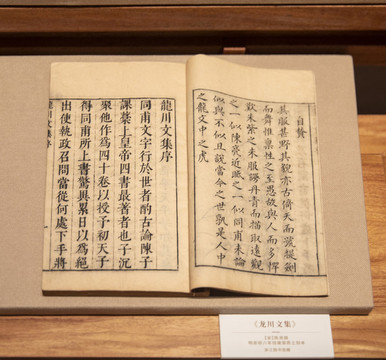 自贊
其服甚野其貌亦古倚天而號提劍
而舞惟稟性之至愚故與人而多忤
歎朱紫之未服謾丹青而描取遠觀
之一似陳亮近眡之一似同甫未論
似與不似且說當今之世孰是人中
之龍文中之虎
龍川文集序
同甫文字行於世者酌古論陳子
課藁上皇帝四書最著者也子沆
聚他作爲四十卷以授予初天子
得同甫所上書驚異累日以爲絕
出使執政召問當從何處下手將
龍川文集序
《龙川文集》
【宋】陈亮撰